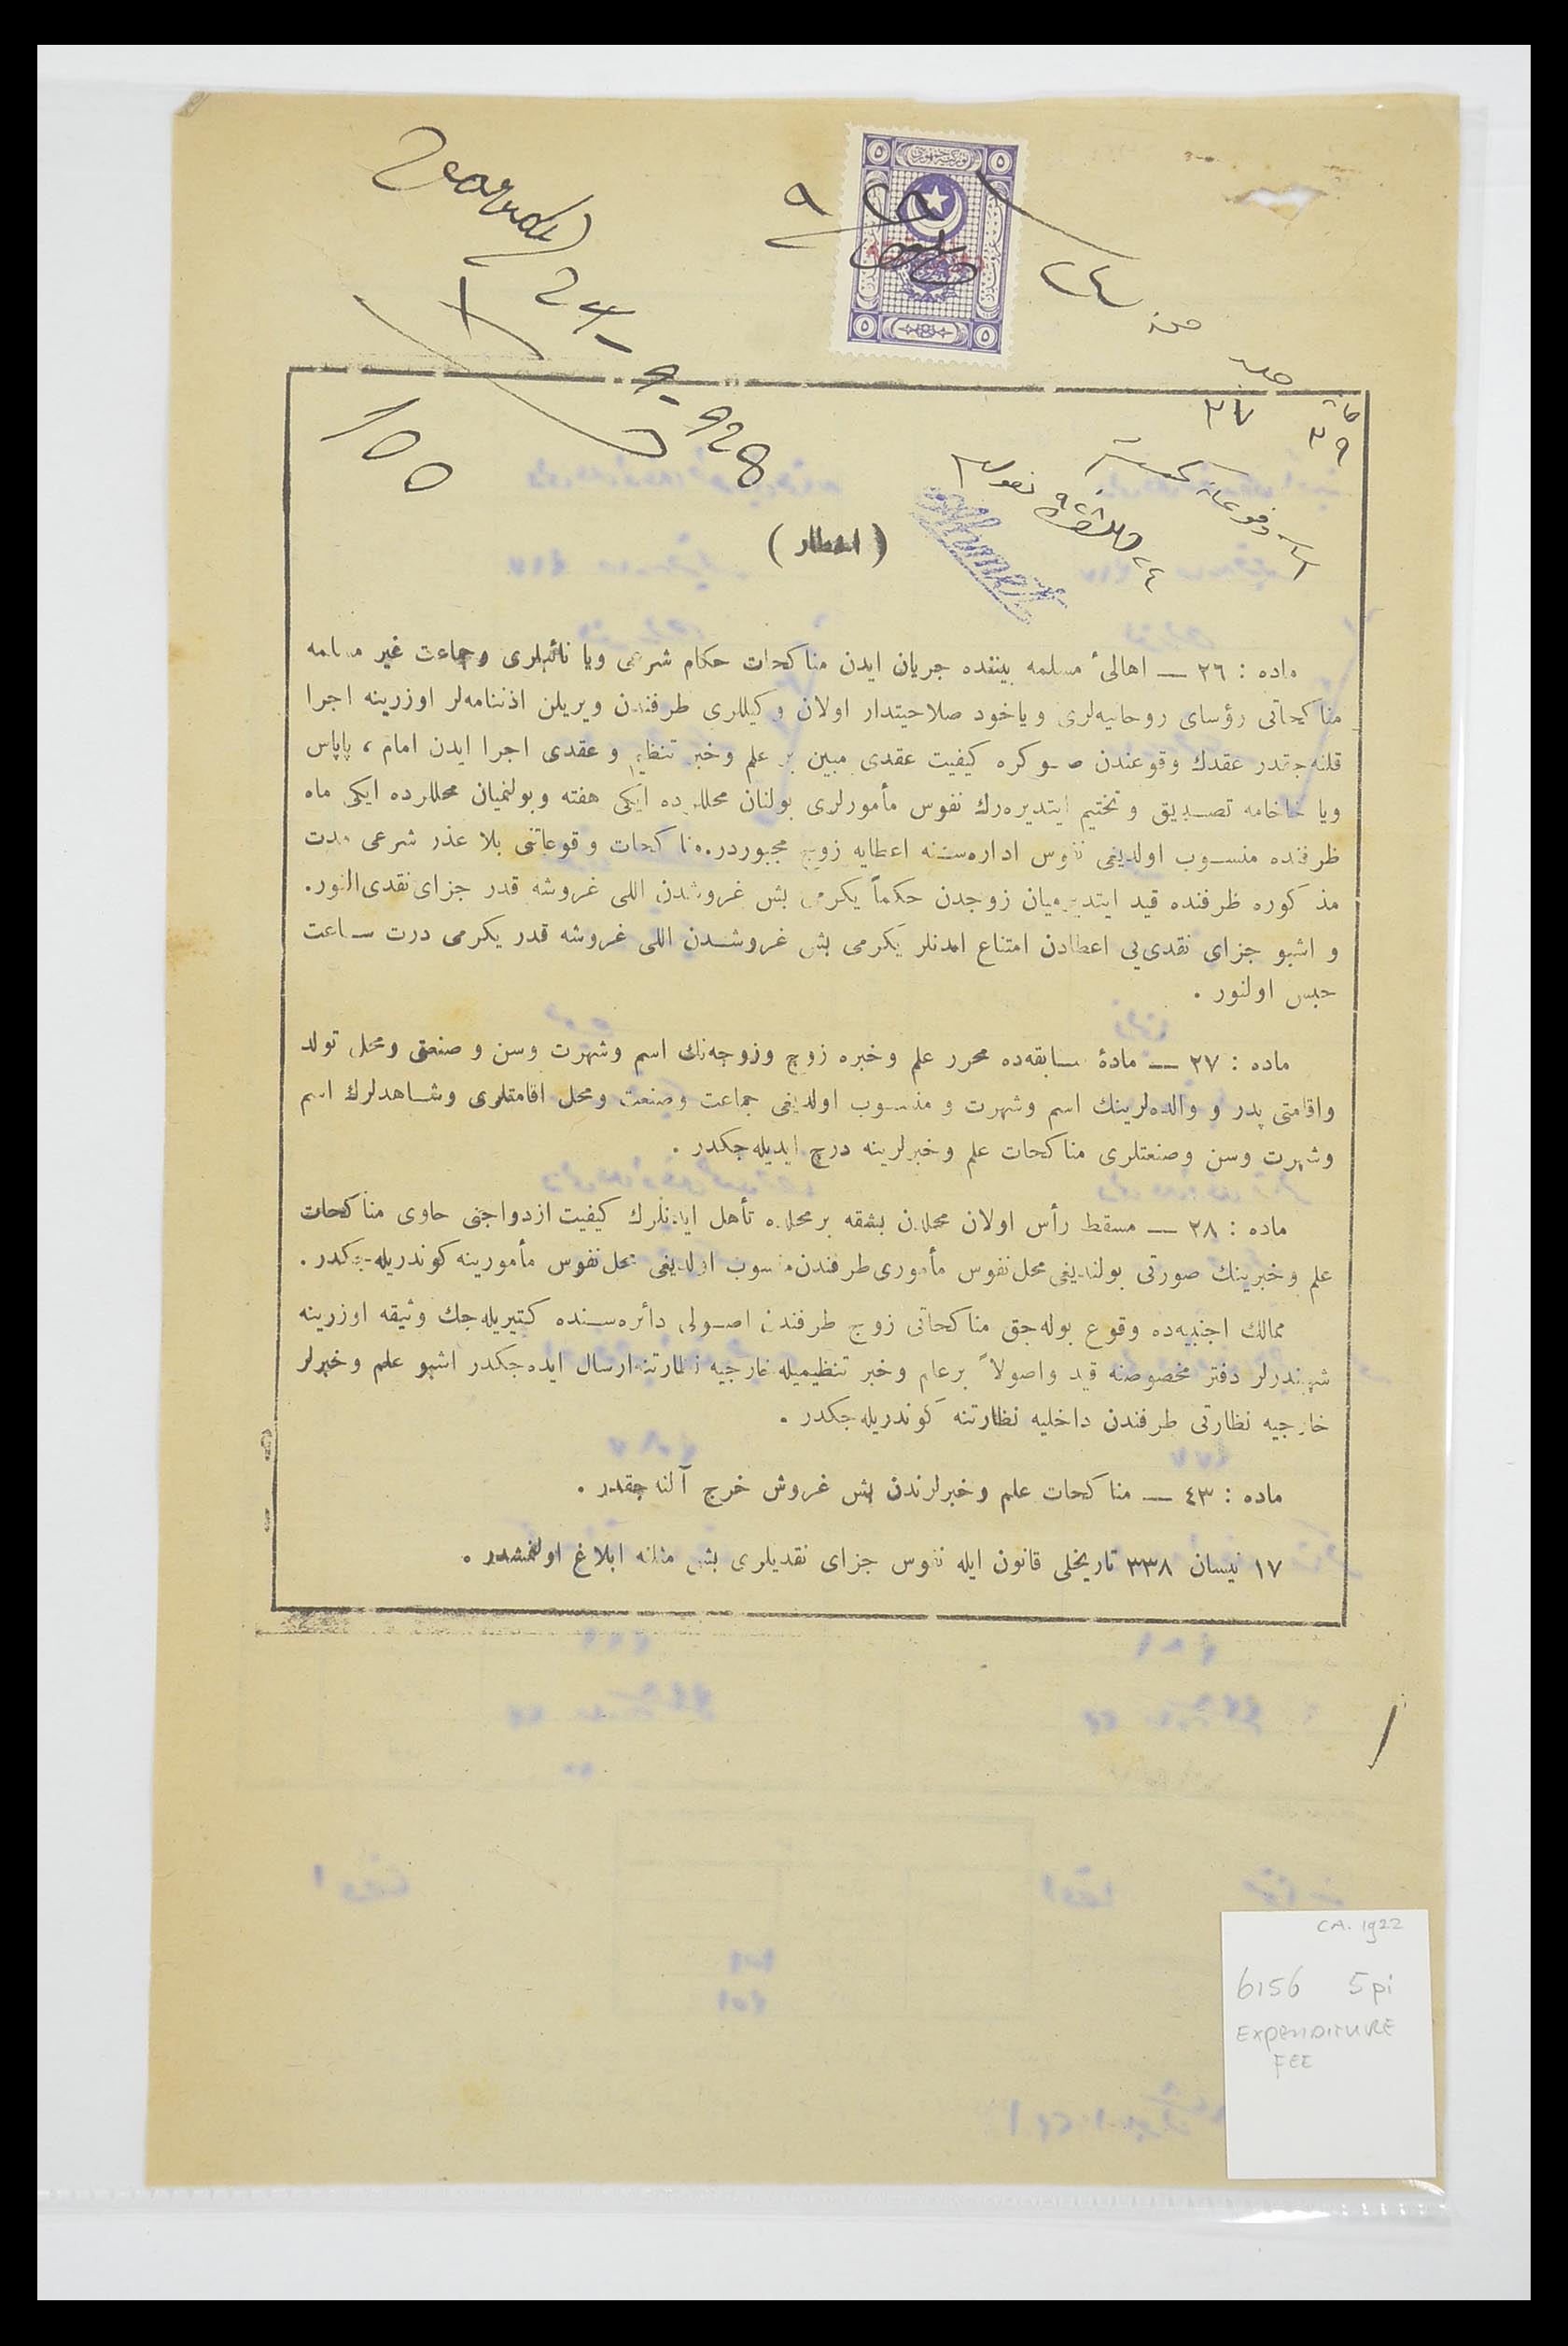 24-9-928
100
٥ ٥
٥ ٥
٢٤
٣٧
٣٩
Ahmet
( اخطار )
ماده : ٢٦ — اهالیٔ مسلمه بیننده جریان ایدن مناكحات حكام شرعی ویا نائبلری وجماعت غیر مسلمه
مناكحاتی رؤسای روحانیه‌لری ویاخود صلاحیتدار اولان وكیللری طرفندن ویریلن اذننامه‌لر اوزرینه اجرا
قلنه‌جقدر عقدك وقوعندن صوكره كیفیت عقدی مبین بر علم وخبر تنظیم و عقدی اجرا ایدن امام ، پاپاس
ویا خاخامه تصدیق وتختیم ایتدیره‌رك نفوس مأمورلری بولنان محللرده ایكی هفته وبولنمیان محللرده ایكی ماه
ظرفنده منسوب اولدیغی نفوس اداره‌سنه اعطایه زوج مجبوردر.مناكحات وقوعاتنی بلا عذر شرعی مدت
مذكوره ظرفنده قید ایتدیرمیان زوجدن حكماً یكرمی بش غروشدن اللی غروشه قدر جزای نقدی النور.
و اشبو جزای نقدی‌یی اعطادن امتناع ایدنلر یكرمی بش غروشدن اللی غروشه قدر یكرمی درت ساعت
حبس اولنور .
ماده : ٢٧ — مادهٔ سابقه‌ده محرر علم وخبره زوج وزوجه‌نك اسم وشهرت وسن و صنعتی ومحل تولد
واقامتی پدر و والده‌لرینك اسم وشهرت و منسوب اولدیغی جماعت وصنعت ومحل اقامتلری وشاهدلرك اسم
وشهرت وسن وصنعتلری مناكحات علم وخبرلرینه درج ایدیله‌جكدر .
ماده : ٢٨ — مسقط رأس اولان محلدن بشقه برمحلده تأهل ایدنلرك كیفیت ازدواجنی حاوی مناكحات
علم وخبرینك صورتی بولندیغی محل نفوس مأموری طرفندن منسوب اولدیغی محل نفوس مأمورینه كوندریله‌جكدر .
ممالك اجنبیه‌ده وقوع بوله‌جق مناكحاتی زوج طرفندن اصولی دائره‌سنده كتیریله‌جك وثیقه اوزرینه
شهبندرلر دفتر مخصوصنه قید واصولاً برعلم وخبر تنظیمیله خارجیه نظارتنه ارسال ایده‌جكدر اشبو علم وخبرلر
خارجیه نظارتی طرفندن داخلیه نظارتنه كوندریله‌جكدر .
ماده : ٤٣ — مناكحات علم وخبرلرندن بش غروش خرج آلنه‌جقدر .
١٧ نیسان ٣٣٨ تاریخلی قانون ایله نفوس جزای نقدیلری بش مثلنه ابلاغ اولنمشدر .
CA. 1922
6156 5pi
EXPENDITURE
FEE